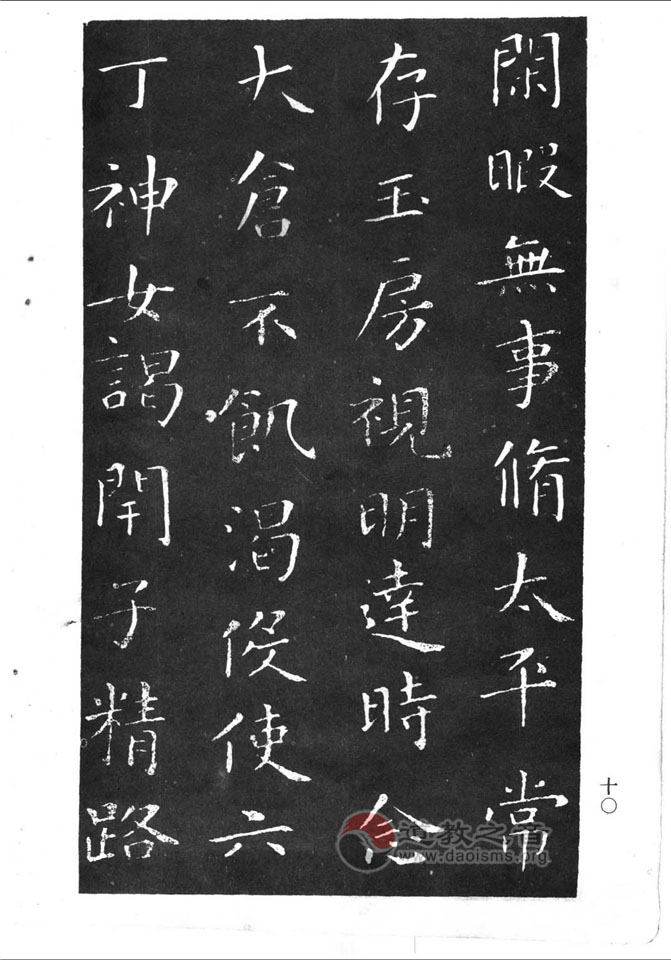 閑暇無事脩太平常
存玉房視明達時念
大倉不飢渴役使六
丁神女謁閇子精路
十〇
道教之音
www.daoisms.org